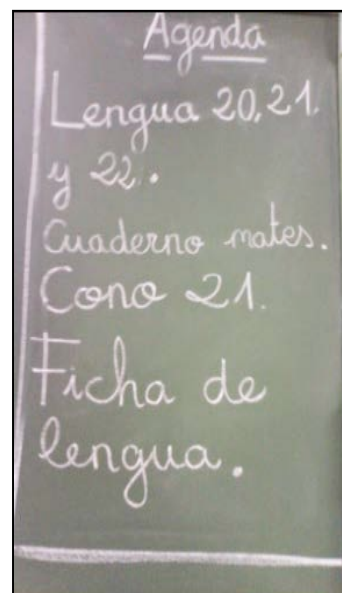 Agenda
Lengua 20,21.
y 22.
Cuaderno mates.
Cono 21.
Ficha de
lengua.